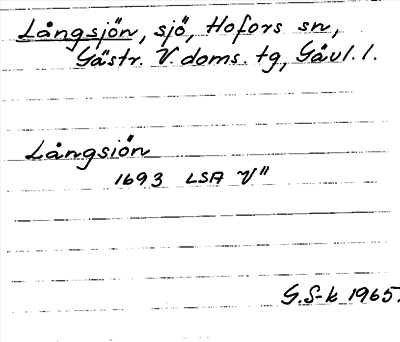 Långsjön, sjö, Hofors sn,
Gästr. V. doms. tg, Gävl. l.
Långsiön
1693 LSA V"
G.S-k 1965.